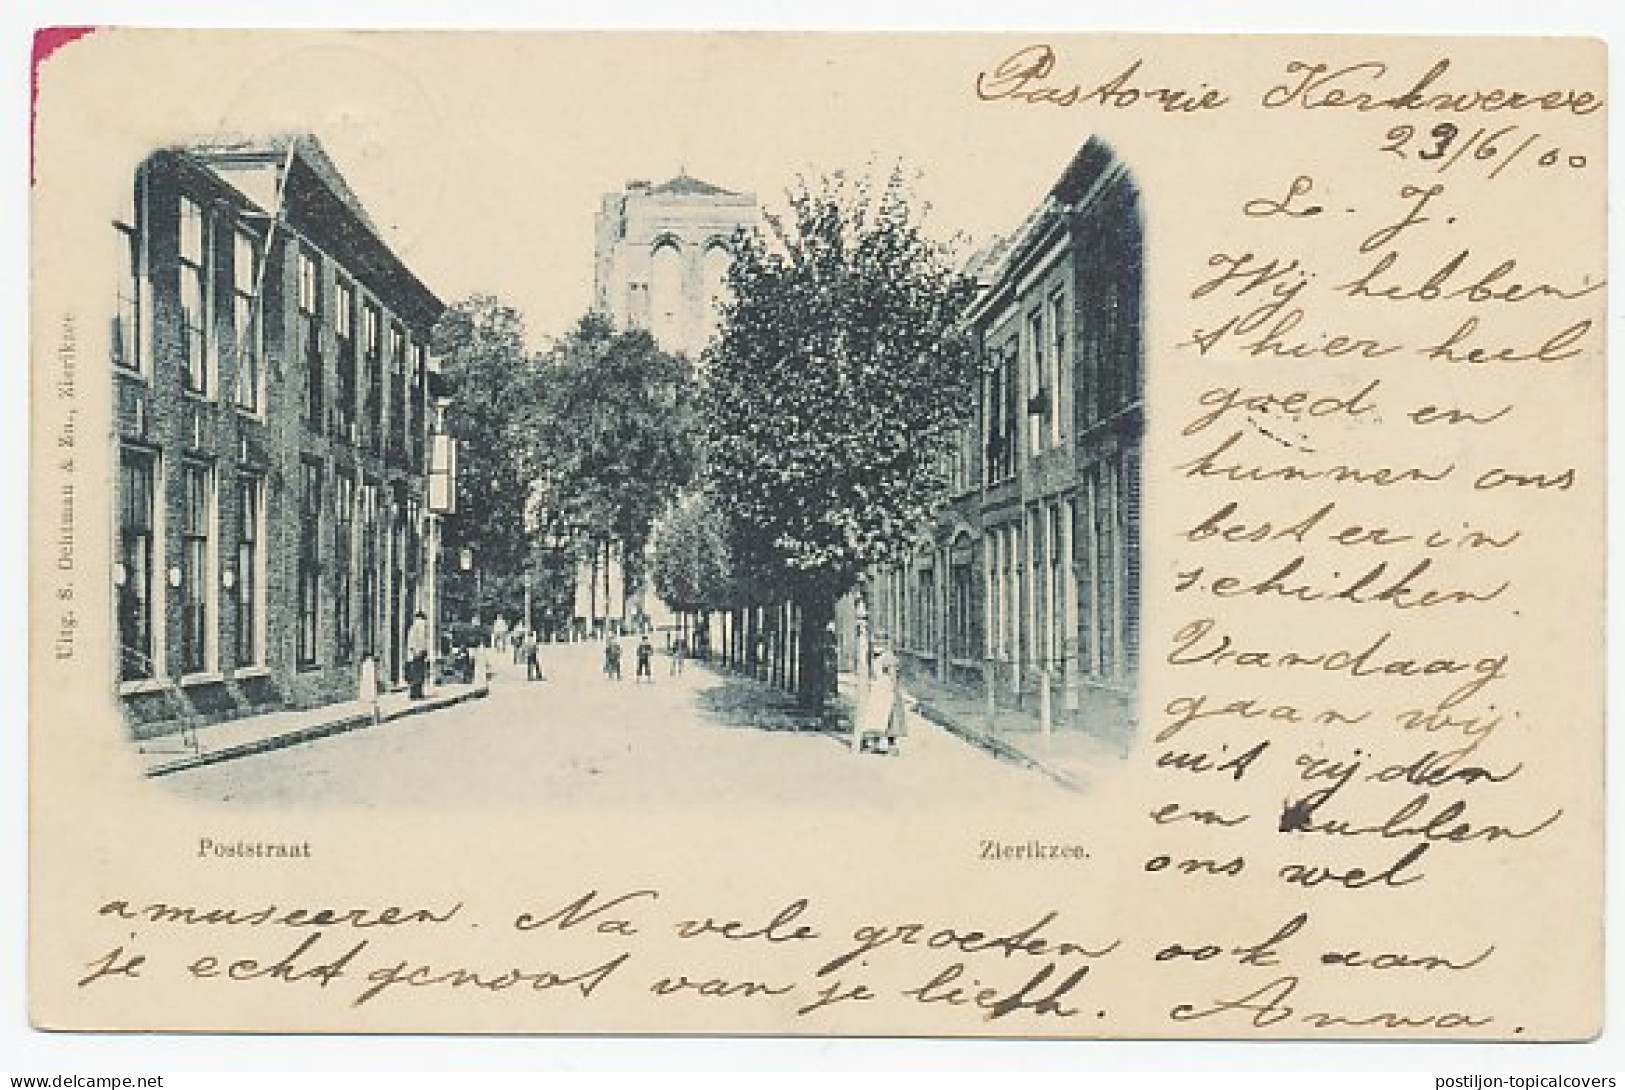 Pastorie Kerkwerve
23/6/00
L. J.
Wij hebben
't hier heel
goed en
kunnen ons
best er in
schikken.
Vandaag
gaan wij
uit rijden
en zullen
ons wel
amuseeren. Na vele groeten ook aan
je echtgenoot van je liefh.
Anna.
Uitg. S. Ochtman & Zn., Zierikzee
Poststraat
Zierikzee.
delcampe.net
postiljon-topicalcovers